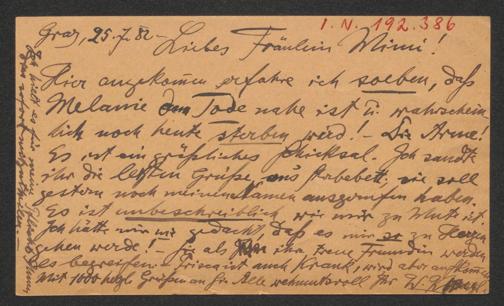 I. N. 192.386
Graz, 25.7.82 - Liebes Fräulein Mimi!
Hier angekommen erfahre ich soeben, daß
Melanie dem Tode nahe ist u. wahrschein
lich noch heute sterben wird! - Die Arme!
Es ist ein gräßliches Schicksal. Ich sandte
ihr die letzten Grüße ans Sterbebett; sie soll
gestern noch meinen Namen ausgerufen haben.
Es ist unbeschreiblich wie mir zu Mute ist
Ich hätte nie gedacht, daß es mir so zu Herzen
gehen werde! - Sie als ihre treue Freundin werden
es begreifen. auch krank, wird aber
Mit 1000 herzl. Grüßen an Sie Alle wehmutsvoll Ihr